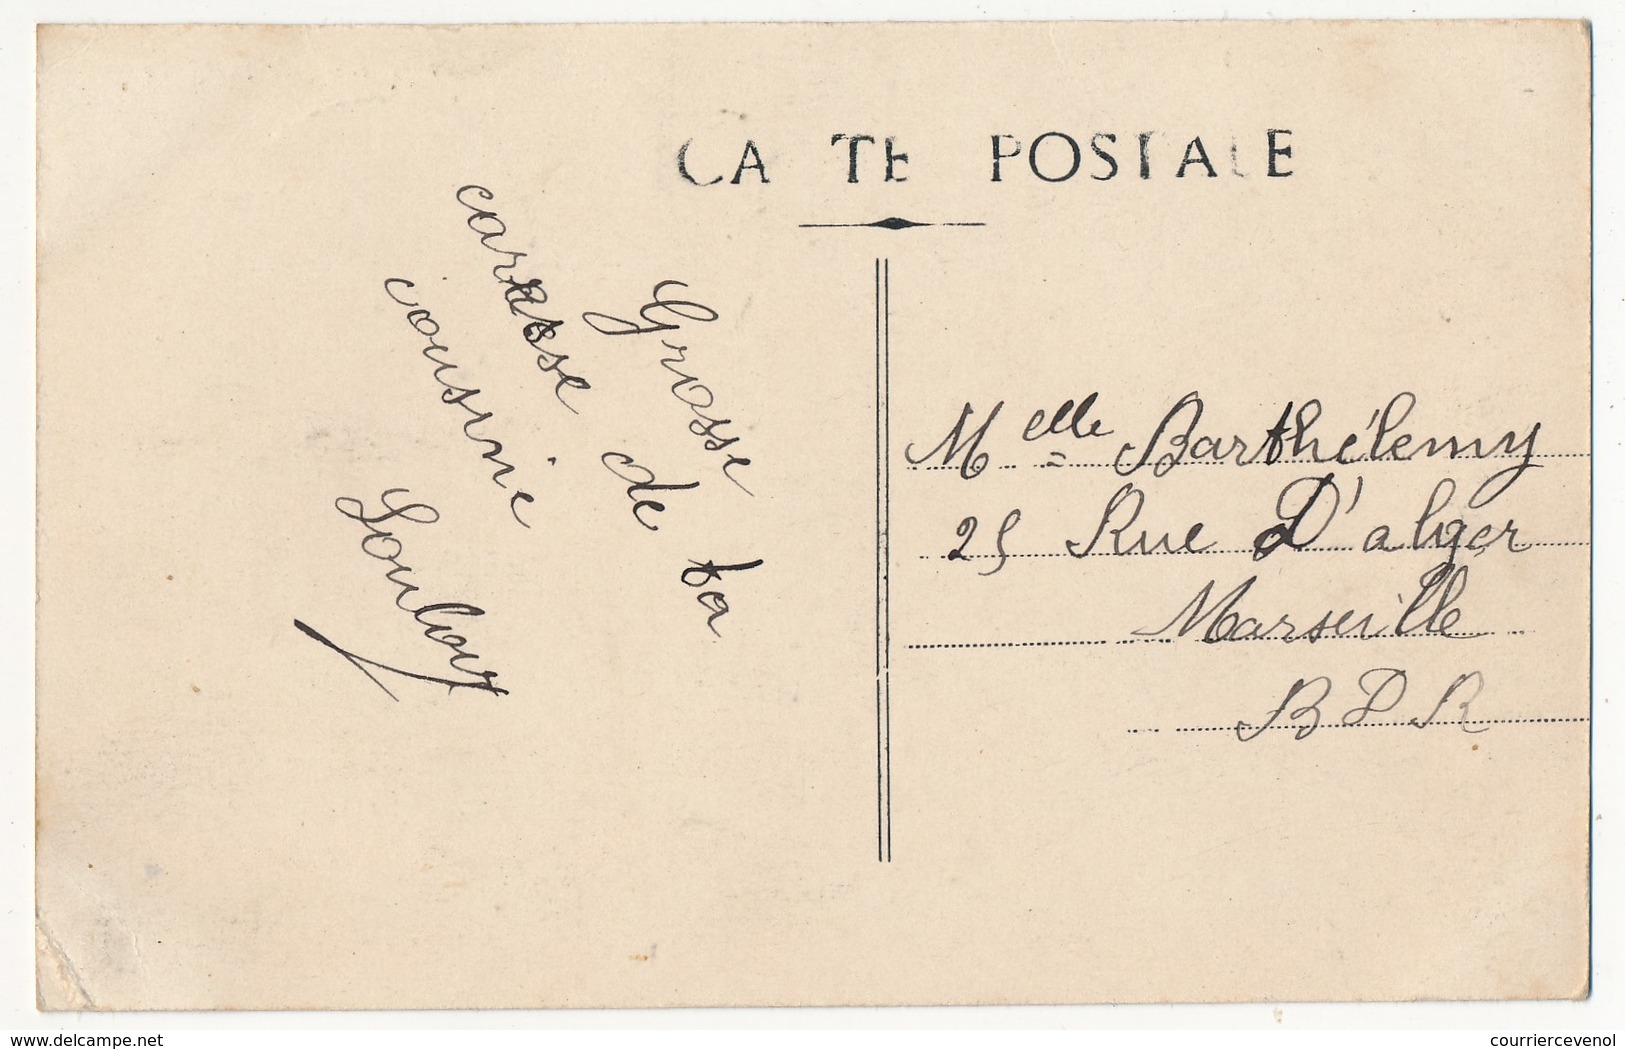 CARTE POSTALE
Grosse
caresse de ta
cousine
Melle Barthélemy
25 Rue D'alger
Marseille
B D R
delcampe.net
courriercevenol